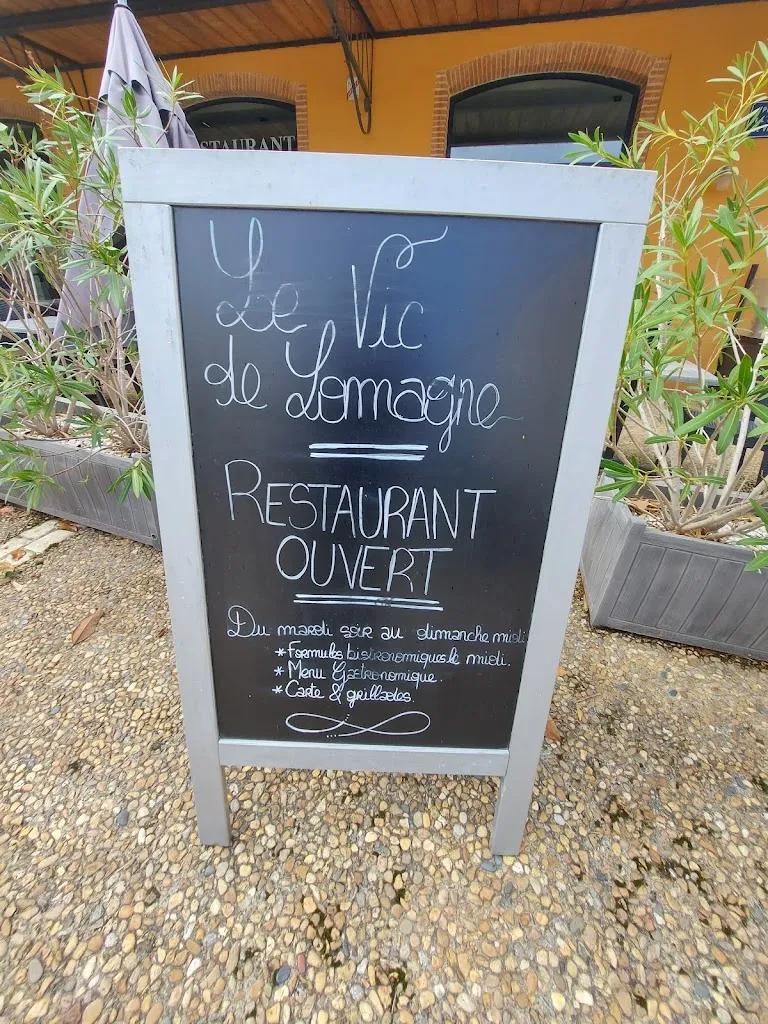 STAURANT
Le Vic
de Lomagne
RESTAURANT
OUVERT
Du mardi soir au dimanche midi
* Formules bistronomiques le midi.
* Menu Gastronomique.
* Carte & grillades.